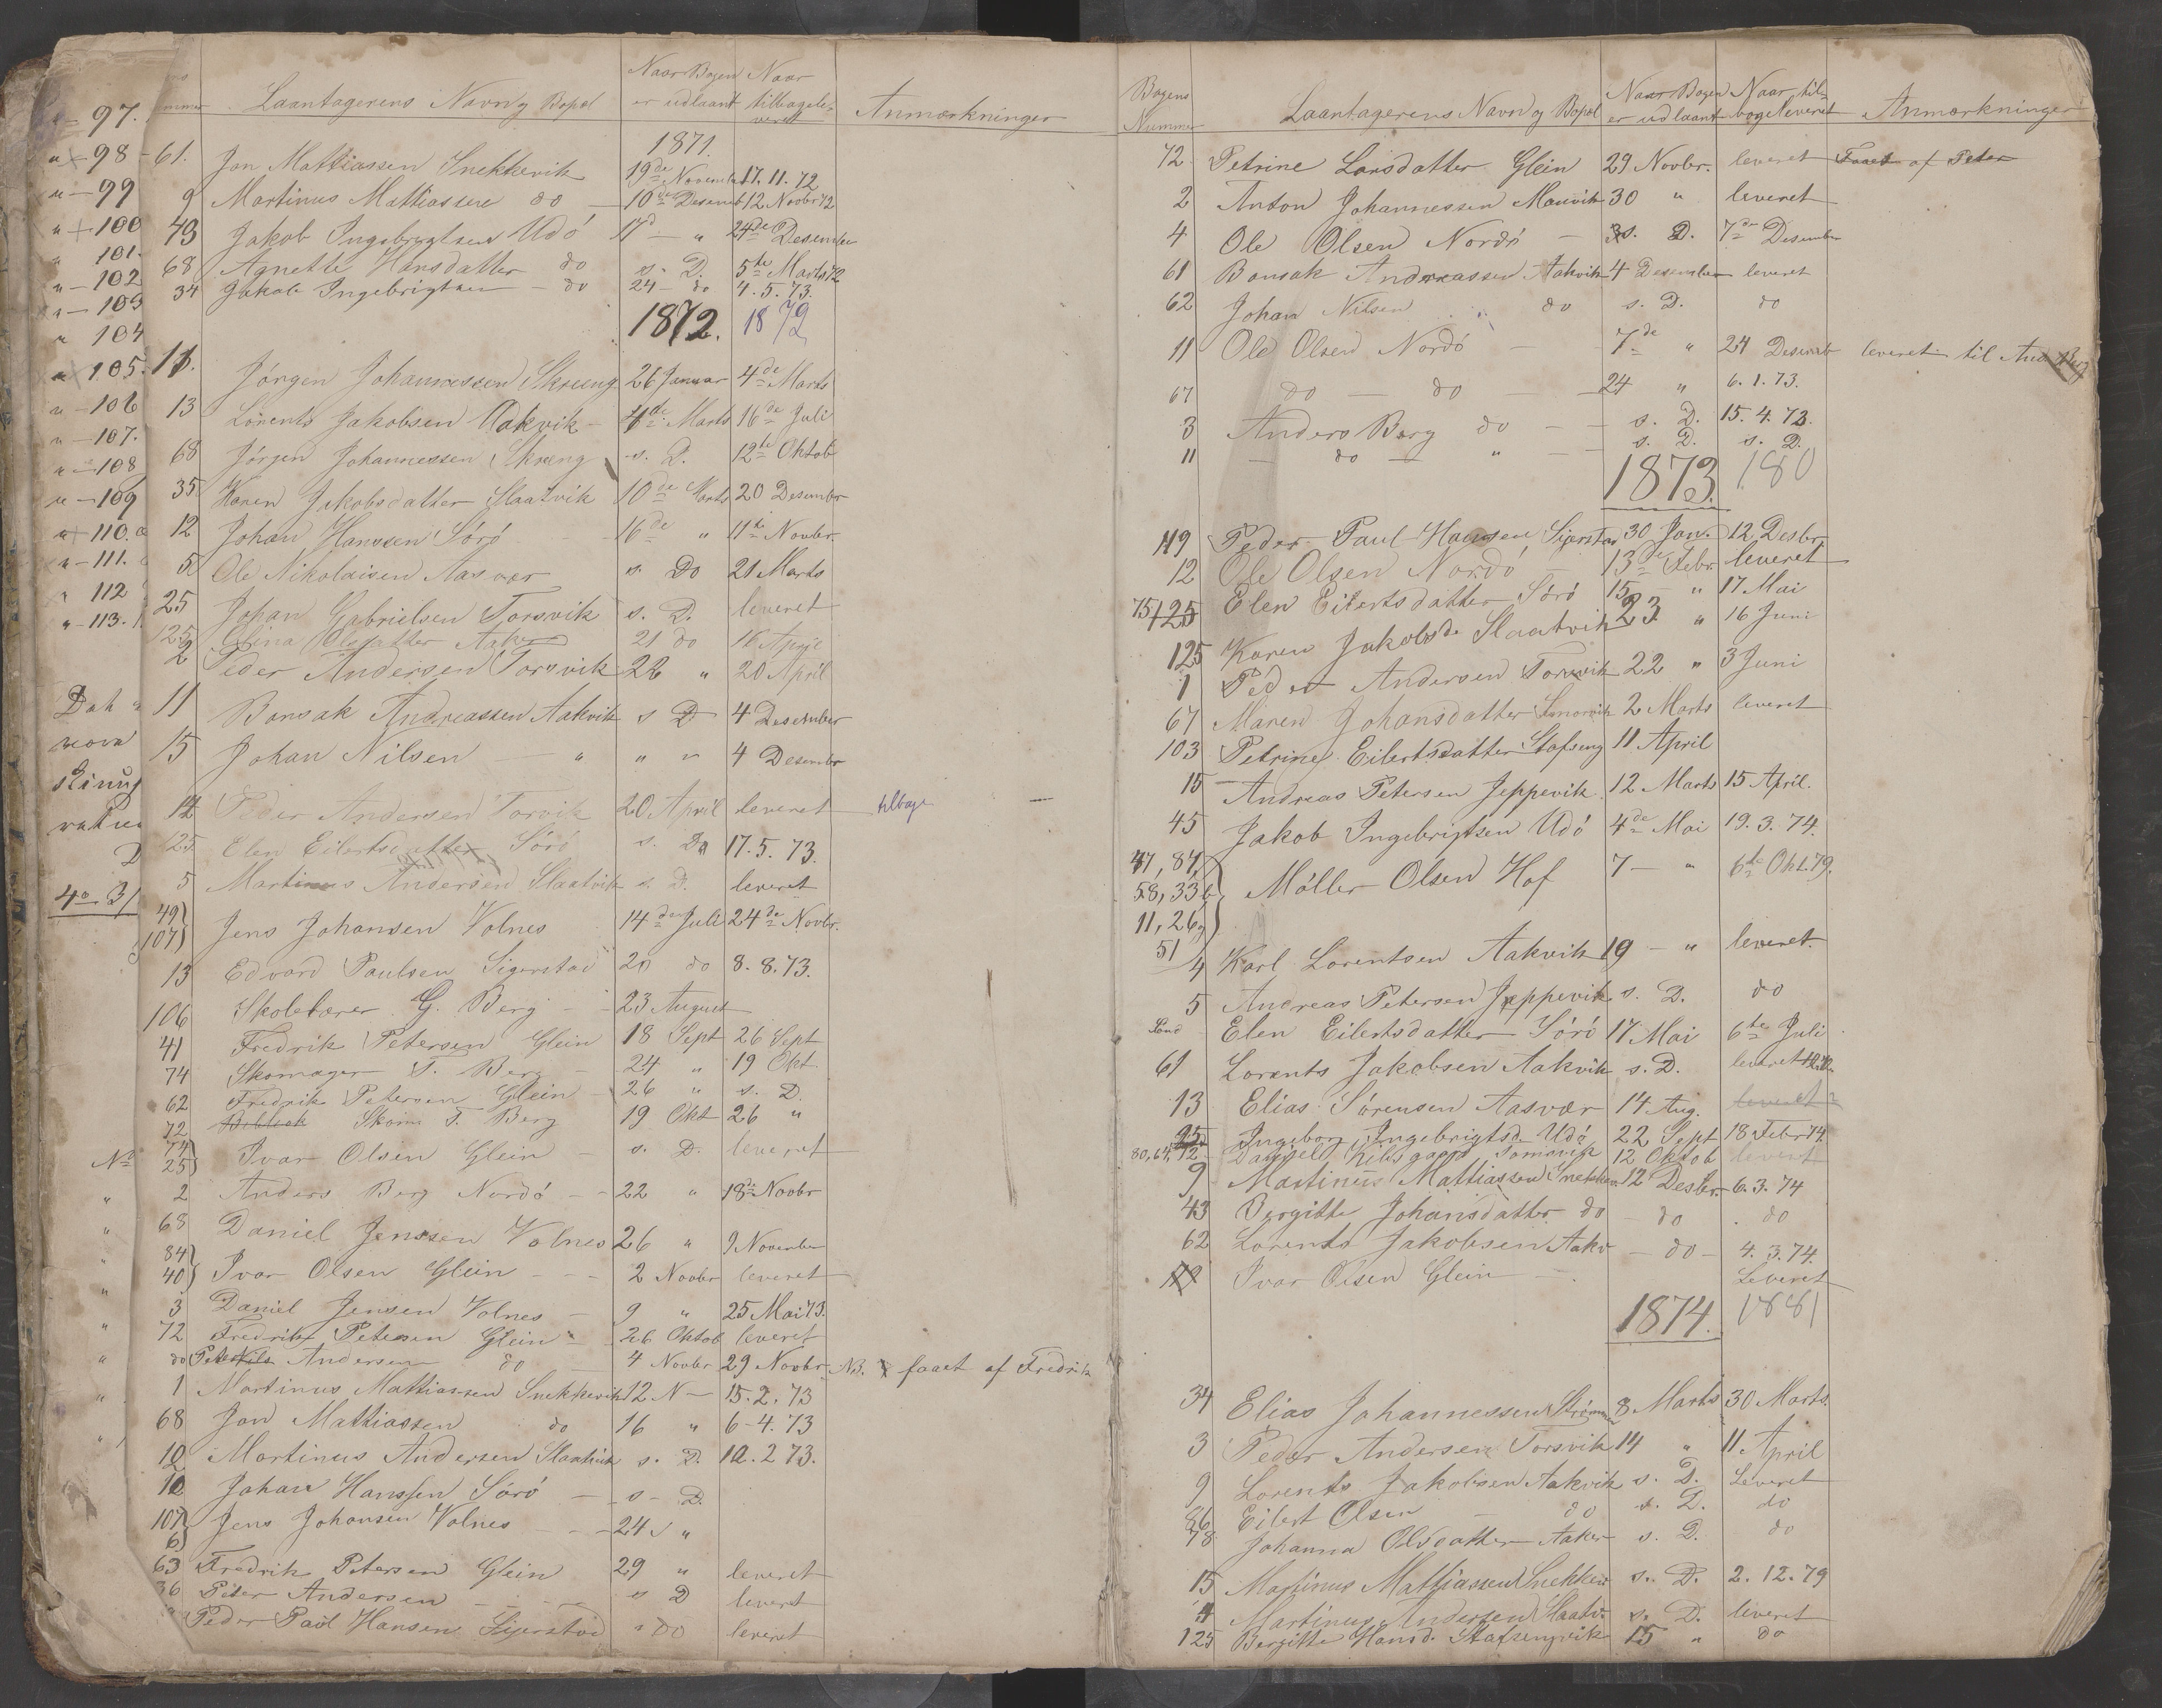 97.
98
99
100
101.
102
103
104
105.
106
107.
108
109
110.
111.
112
113.
Laantagerens Navn og Bopæl Naar Bogen er udlaant Naar tilbagele-veret Anmærkninger
1871.
61. Jan Mattiassen Snekkevik 19de November 17.11.72
9 Martinus Mattiassen do 10de Desemb 12 Novbr 72
43 Jakob Ingebrigtsen Udö 17d " 24de Desember
68 Agnette Hansdatter do s. D. 5te Marts 72
34 Jakob Ingebrigtsen do 24 do 4.5.73.
1872. 1879
11. Jörgen Johannessen Skreeng 26 Januar 4de Marts
13 Lorents Jakobsen Aakvik 4de Marts 16de Juli
68 Jörgen Johannessen Skreeng s. D. 12te Oktob
35 Karen Jakobsdatter Slaatvik 10de Marts 20 Desember
12 Johan Hanssen Sörö 16de " 11te Novbr.
5 Ole Nikolaisen Aasvær s. Do 21 Marts
25 Johan Gabrielsen Torsvik s. D. leveret
125 Olina Olsdatter Aaker 21 do 16 April
2 Peder Andersen Torsvik 22 " 20 April
11 Bonsak Andreassen Aakvik s D 4 Desember
15 Johan Nilsen " " " 4 Desember
14 Peder Andersen Torvik 20 April leveret tilbage
125 Elen Eilertsdatter Sörö s. Do 17.5.73.
5 Martinus Andersen Slaatvik s. D. leveret
49) 107) Jens Johansen Volnes 14de Juli 24de Novbr.
13 Edvard Paulsen Sigerstad 20 do 8.8.73.
106 Skolelærer G. Berg 23 August
41 Fredrik Petersen Glein 18 Sept 26 Sept
74 Skomager T. Berg 24 " 19 Okt
62 Fredrik Petersen Glein 26 " s. D.
72 Skom T. Berg 19 Okt 26 "
74) 25) Ivar Olsen Glein s. D. leveret
2 Anders Berg Nordö 22 " 18de Novbr
68 Daniel Jenssen Volnes 26 " 9 November
84) 40) Ivar Olsen Glein 2 Novbr leveret
3 Daniel Jensen Volnes 9 " 25 Mai 73.
72 Fredrik Petersen Glein 26 Oktob leveret
do Peter Andersen do 4 Novbr 29 Novbr NB. faaet af Fredrik
1 Martinus Mattiassen Snekkevik 12 N 15.2.73
68 Jan Mattiassen do 16 " 6-4.73
12 Martinus Andersen Slaatvik s. D. 12.2 73.
10 Johan Hanssen Sörö s D.
107) 6) Jens Johansen Volnes 24 "
63 Fredrik Petersen Glein 29 " leveret
36 Peter Andersen s D leveret
" Peder Paul Hansen Sigerstad " Do leveret
Bogens Nummer Laantagerens Navn og Bopæl Naar Bogen er udlaant Naar til-bageleveret Anmærkninger
72 Petrine Larsdatter Glein 29 Novbr. leveret Faaet af Peter
2 Anton Johannessen Manvik 30 " leveret
4 Ole Olsen Nordö s. D. 7de Desember
61 Bonsak Andreassen Aakvik 4 Desember leveret
62 Johan Nilsen do s. D. do
11 Ole Olsen Nordö 7de " 24 Desemb leveret til And. Berg
67 do do 24 " 6.1.73.
3 Anders Berg do s. D. 15.4.73.
11 do " s. D. s. D.
1873. 180
49 Peder Paul Hansen Sigerstad 30 Jan. 12 Desbr
12 Ole Olsen Nordö 13de Febr. leveret
75/125 Elen Eilertsdatter Sörö 15 " 17 Mai
125 Karen Jakobsd. Slaatvik 23 " 16 Juni
1 Peder Andersen Torsvik 22 " 3 Juni
67 Maren Johansdatter 2 Marts leveret
103 Petrine Eilertsdatter Stafseng 11 April
15 Andreas Petersen Jeppevik 12 Marts 15 April.
45 Jakob Ingebrigtsen Udö 4de Mai 19.3.74.
47, 87, 58, 33, 11, 26, 51 Möller Olsen Hof 7 " 6te Okt. 79.
4 Karl Lorentsen Aakvik 19 " leveret.
5 Andreas Petersen Jeppevik s. D. do
Elen Eilertsdatter Sörö 17 Mai 6te Juli
61 Lorents Jakobsen Aakvik s. D. leveret
13 Elias Sörensen Aasvær 14 Aug. leveret
25 Ingeborg Ingebrigtsd. Udö 22 Sept 18 Febr 74.
80, 64, 12 Daniel 12 Oktob leveret
9 Martinus Mattiassen Snekkev. 12 Desbr. 6.3.74
43 Bergitte Johansdatter do do do
62 Lorents Jakobsen Aakv do 4.3.74.
Ivar Olsen Glein Leveret
1874. 1881
34 Elias Johannessen 8 Marts 30 Marts.
3 Peder Andersen Torsvik 14 " 11 April
9 Lorents Jakobsen Aakvik s. D. Leveret
86 Eilert Olsen do s. D. do
78 Johanna Olsdatter Aaker s. D. do
15 Martinus Mattiassen Snekkev s. D. 2.12.79
4 Martinus Andersen Slaatv. s. D. leveret
125 Bergitte Hansd. Stafsengvik 15 " do